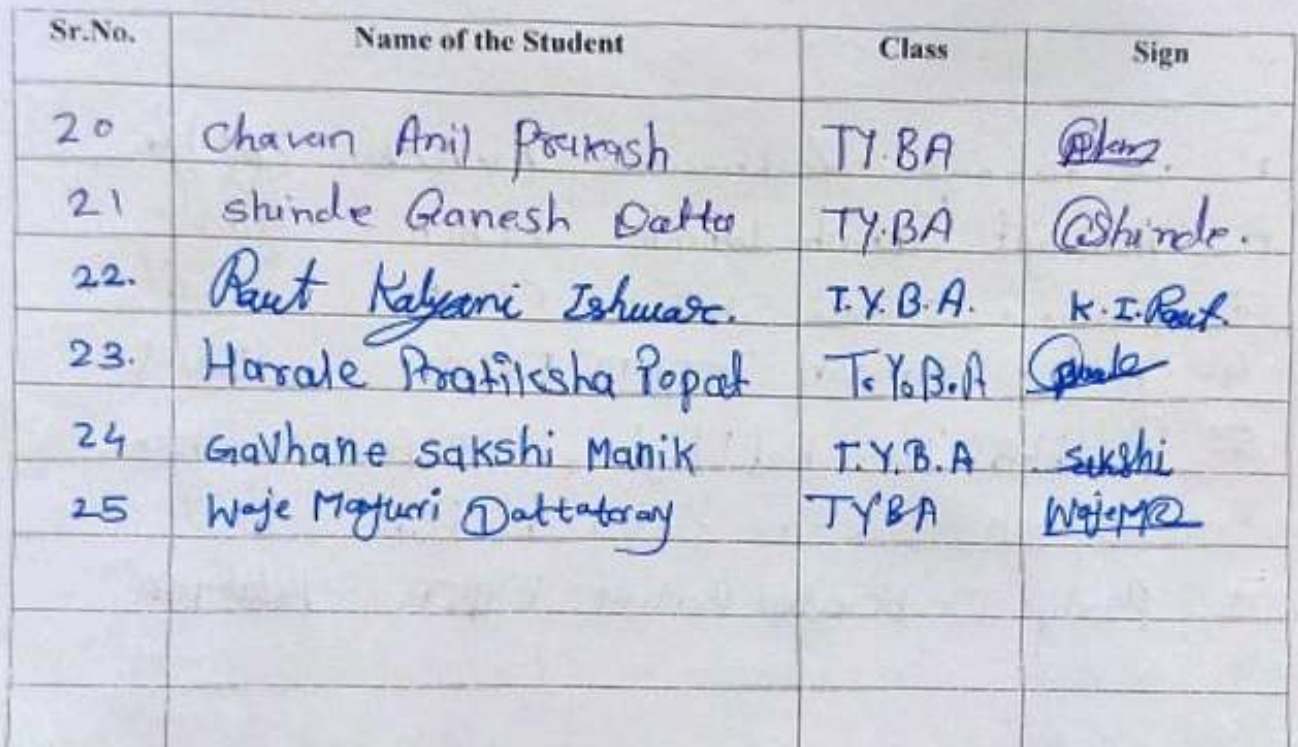 Sr.No. Name of the Student Class Sign
20 Chavan Anil Prakash TY.BA
21 shinde Ganesh Datta TY.BA Shinde.
22. Raut Kalyani Ishwar. T.Y.B.A. K.I.Raut.
23. Harale Pratiksha Popat T.Y.B.A
24 Gavhane sakshi Manik T.Y.B.A sakshi
25 Waje Mayuri Dattatray TYBA